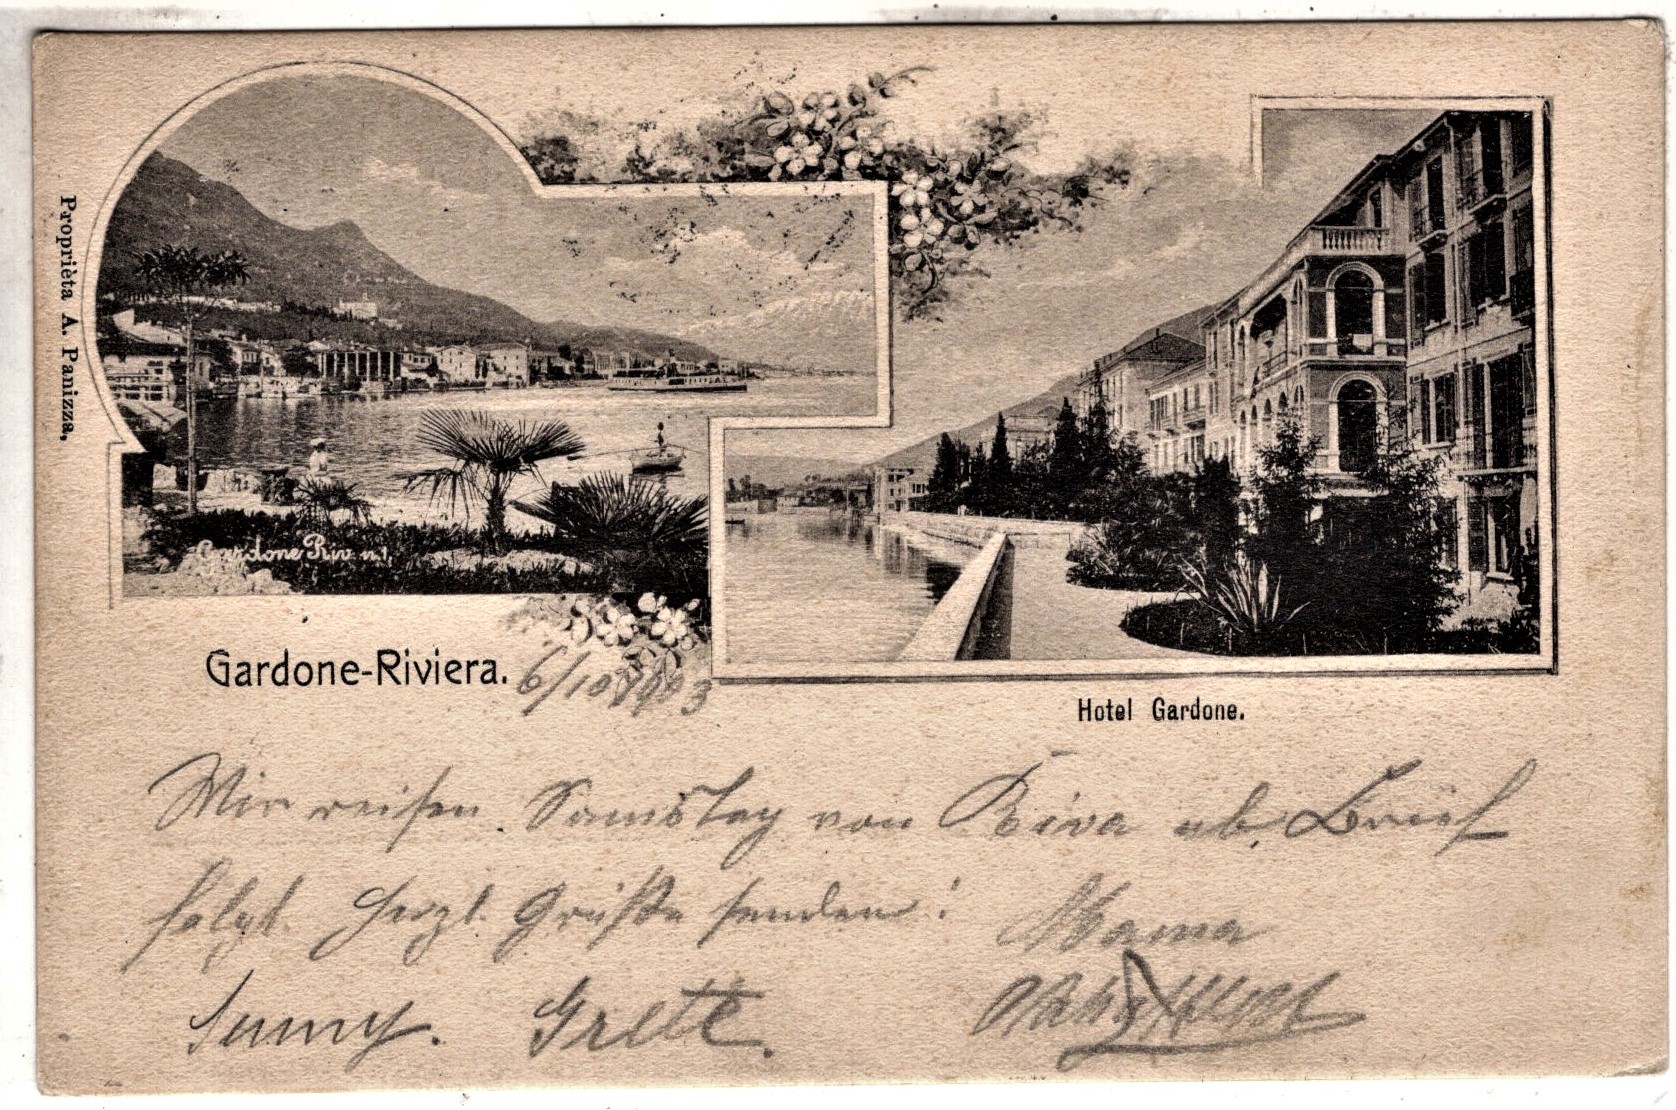 Proprièta A. Panizza.
Gardone Riv. n.1.
Gardone-Riviera.
6/10 1903
Hotel Gardone.
Wir reisen Samstag von Riva ab, Brief
folgt. Herzl. Grüße senden! Mama
Grete.